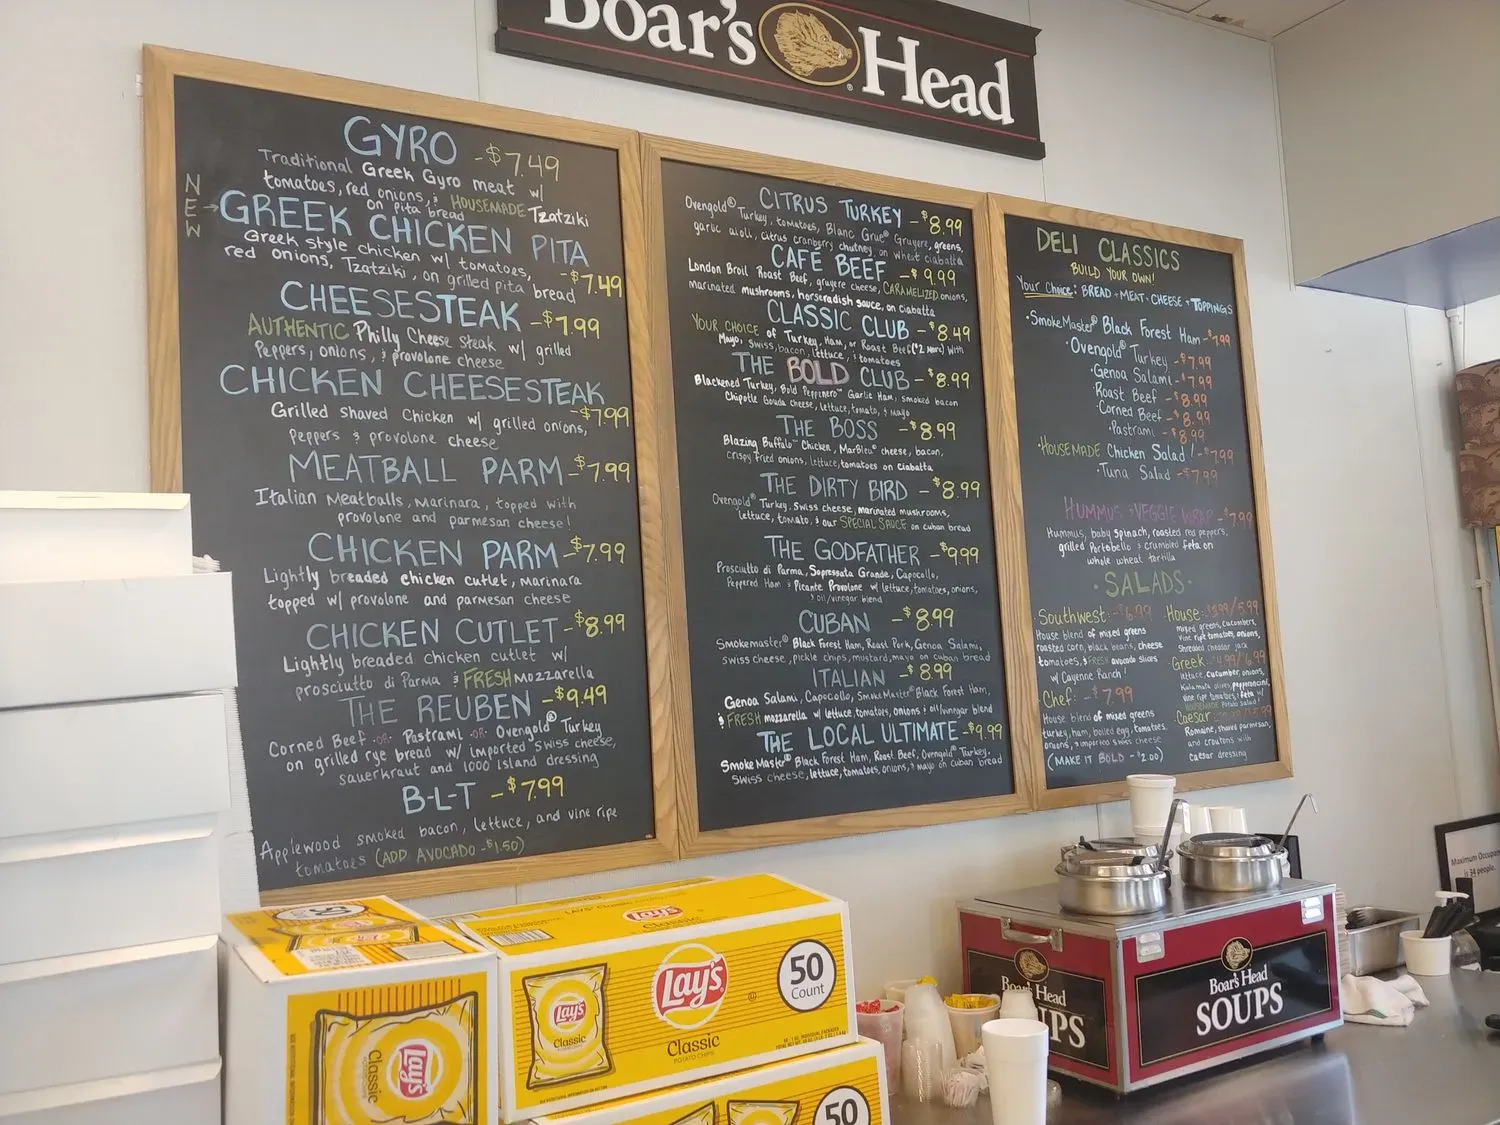 Boar's Head
GYRO - $7.49
Traditional Greek Gyro meat w/
tomatoes, red onions, & HOUSEMADE Tzatziki
on pita bread
NEW →
GREEK CHICKEN PITA
Greek style chicken w/ tomatoes,
red onions, Tzatziki, on grilled pita bread
- $7.49
CHEESESTEAK - $7.99
AUTHENTIC Philly Cheese Steak w/ grilled
Peppers, onions, & provolone cheese
CHICKEN CHEESESTEAK
- $7.99
Grilled shaved Chicken w/ grilled onions,
Peppers & provolone cheese
MEATBALL PARM - $7.99
Italian Meatballs, Marinara, topped with
provolone and parmesan cheese!
CHICKEN PARM - $7.99
Lightly breaded chicken cutlet, Marinara
topped w/ provolone and parmesan cheese
CHICKEN CUTLET - $8.99
Lightly breaded chicken cutlet w/
prosciutto di Parma & FRESH Mozzarella
THE REUBEN - $9.49
Corned Beef -OR- Pastrami -OR- Ovengold® Turkey
on grilled rye bread w/ imported Swiss cheese,
sauerkraut and 1000 island dressing
B-L-T - $7.99
Applewood smoked bacon, lettuce, and vine ripe
tomatoes (ADD AVOCADO - $1.50)
CITRUS TURKEY - $8.99
Ovengold® Turkey, tomatoes, Blanc Grue® Gruyere, greens,
garlic aioli, citrus cranberry chutney, on wheat ciabatta
CAFÉ BEEF - $9.99
London Broil Roast Beef, gruyere cheese, CARAMELIZED onions,
marinated mushrooms, horseradish sauce, on ciabatta
CLASSIC CLUB - $8.49
YOUR CHOICE of Turkey, Ham, or Roast Beef ($2 More) with
Mayo, Swiss, bacon, lettuce, & tomatoes
THE BOLD CLUB - $8.99
Blackened Turkey, Bold Pepperenero™ Garlic Ham, smoked bacon
Chipotle Gouda cheese, lettuce, tomato, & mayo
THE BOSS - $8.99
Blazing Buffalo™ Chicken, MarBleu® cheese, bacon,
crispy fried onions, lettuce, tomatoes on ciabatta
THE DIRTY BIRD - $8.99
Ovengold® Turkey, Swiss cheese, marinated mushrooms,
lettuce, tomato, & our SPECIAL SAUCE on cuban bread
THE GODFATHER - $9.99
Prosciutto di Parma, Sopressata Grande, Capocollo,
Peppered Ham & Picante Provolone w/ lettuce, tomatoes, onions,
& oil/vinegar blend
CUBAN - $8.99
Smokemaster® Black Forest Ham, Roast Pork, Genoa Salami,
swiss cheese, pickle chips, mustard, mayo on cuban bread
ITALIAN - $8.99
Genoa Salami, Capocollo, SmokeMaster® Black Forest Ham,
& FRESH mozzarella w/ lettuce, tomatoes, onions & oil/vinegar blend
THE LOCAL ULTIMATE - $9.99
SmokeMaster® Black Forest Ham, Roast Beef, Ovengold® Turkey,
Swiss cheese, lettuce, tomatoes, onions, & mayo on cuban bread
DELI CLASSICS
BUILD YOUR OWN!
Your Choice: BREAD + MEAT + CHEESE + TOPPINGS
· SmokeMaster® Black Forest Ham - $7.99
· Ovengold® Turkey - $7.99
· Genoa Salami - $7.99
Roast Beef - $8.99
· Corned Beef - $8.99
· Pastrami - $8.99
· HOUSEMADE Chicken Salad! - $7.99
· Tuna Salad - $7.99
HUMMUS & VEGGIE WRAP - $7.99
Hummus, baby spinach, roasted red peppers,
grilled Portobello & crumbled feta on
whole wheat tortilla
· SALADS ·
Southwest: - $6.99
House blend of mixed greens
roasted corn, black beans, cheese
tomatoes, & FRESH avocado slices
w/ Cayenne Ranch!
Chef: - $7.99
House blend of mixed greens
turkey, ham, boiled egg, tomatoes,
onions, & imported Swiss cheese
(MAKE IT BOLD - $2.00)
House: $3.99/5.99
Mixed greens, cucumbers,
vine ripe tomatoes, onions,
Shredded cheddar jack
Greek $4.99/$6.99
Lettuce, cucumber, onions,
Kalamata olives, pepperoncini,
vine ripe tomatoes & feta w/
HOUSEMADE Potato salad!
Caesar
Romaine, shaved parmesan,
and croutons with
caesar dressing
50
Lay's
Classic
Lay's
Classic
Lay's
Classic
Lay's
Classic
POTATO CHIPS
50
Count
50
Boar's Head
UPS
Boar's Head
SOUPS
Maximum Occupan
is 34 people.